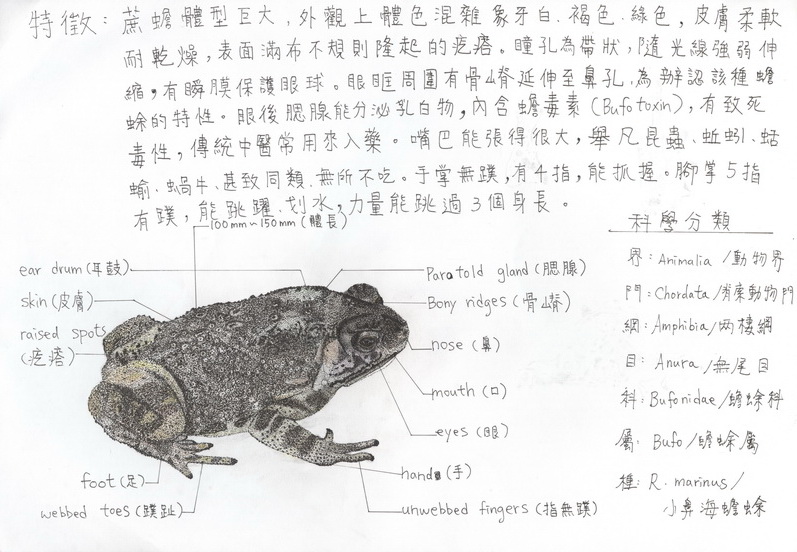 特徵：蔗蟾體型巨大，外觀上體色混雜象牙白、褐色、綠色，皮膚柔軟
耐乾燥，表面滿布不規則隆起的疙瘩。瞳孔為帶狀，隨光線強弱伸
縮，有瞬膜保護眼球。眼眶周圍有骨嵴延伸至鼻孔，為辨認該種蟾
蜍的特性。眼後腮腺能分泌乳白物，內含蟾毒素（Bufotoxin），有致死
毒性，傳統中醫常用來入藥。嘴巴能張得很大，舉凡昆蟲、蚯蚓、蛞
蝓、蝸牛、甚致同類、無所不吃。手掌無蹼，有4指，能抓握。腳掌5指
有蹼，能跳躍、划水，力量能跳過3個身長。
100mm~150mm（體長）
ear drum（耳鼓）
skin（皮膚）
raised spots
（疙瘩）
foot（足）
webbed toes（蹼趾）
Paratold gland（腮腺）
Bony ridges（骨嵴）
nose（鼻）
mouth（口）
eyes（眼）
hand（手）
unwebbed fingers（指無蹼）
科學分類
界：Animalia/動物界
門：Chordata/脊索動物門
綱：Amphibia/兩棲綱
目：Anura/無尾目
科：Bufonidae/蟾蜍科
屬：Bufo/蟾蜍屬
種：R. marinus/
小鼻海蟾蜍